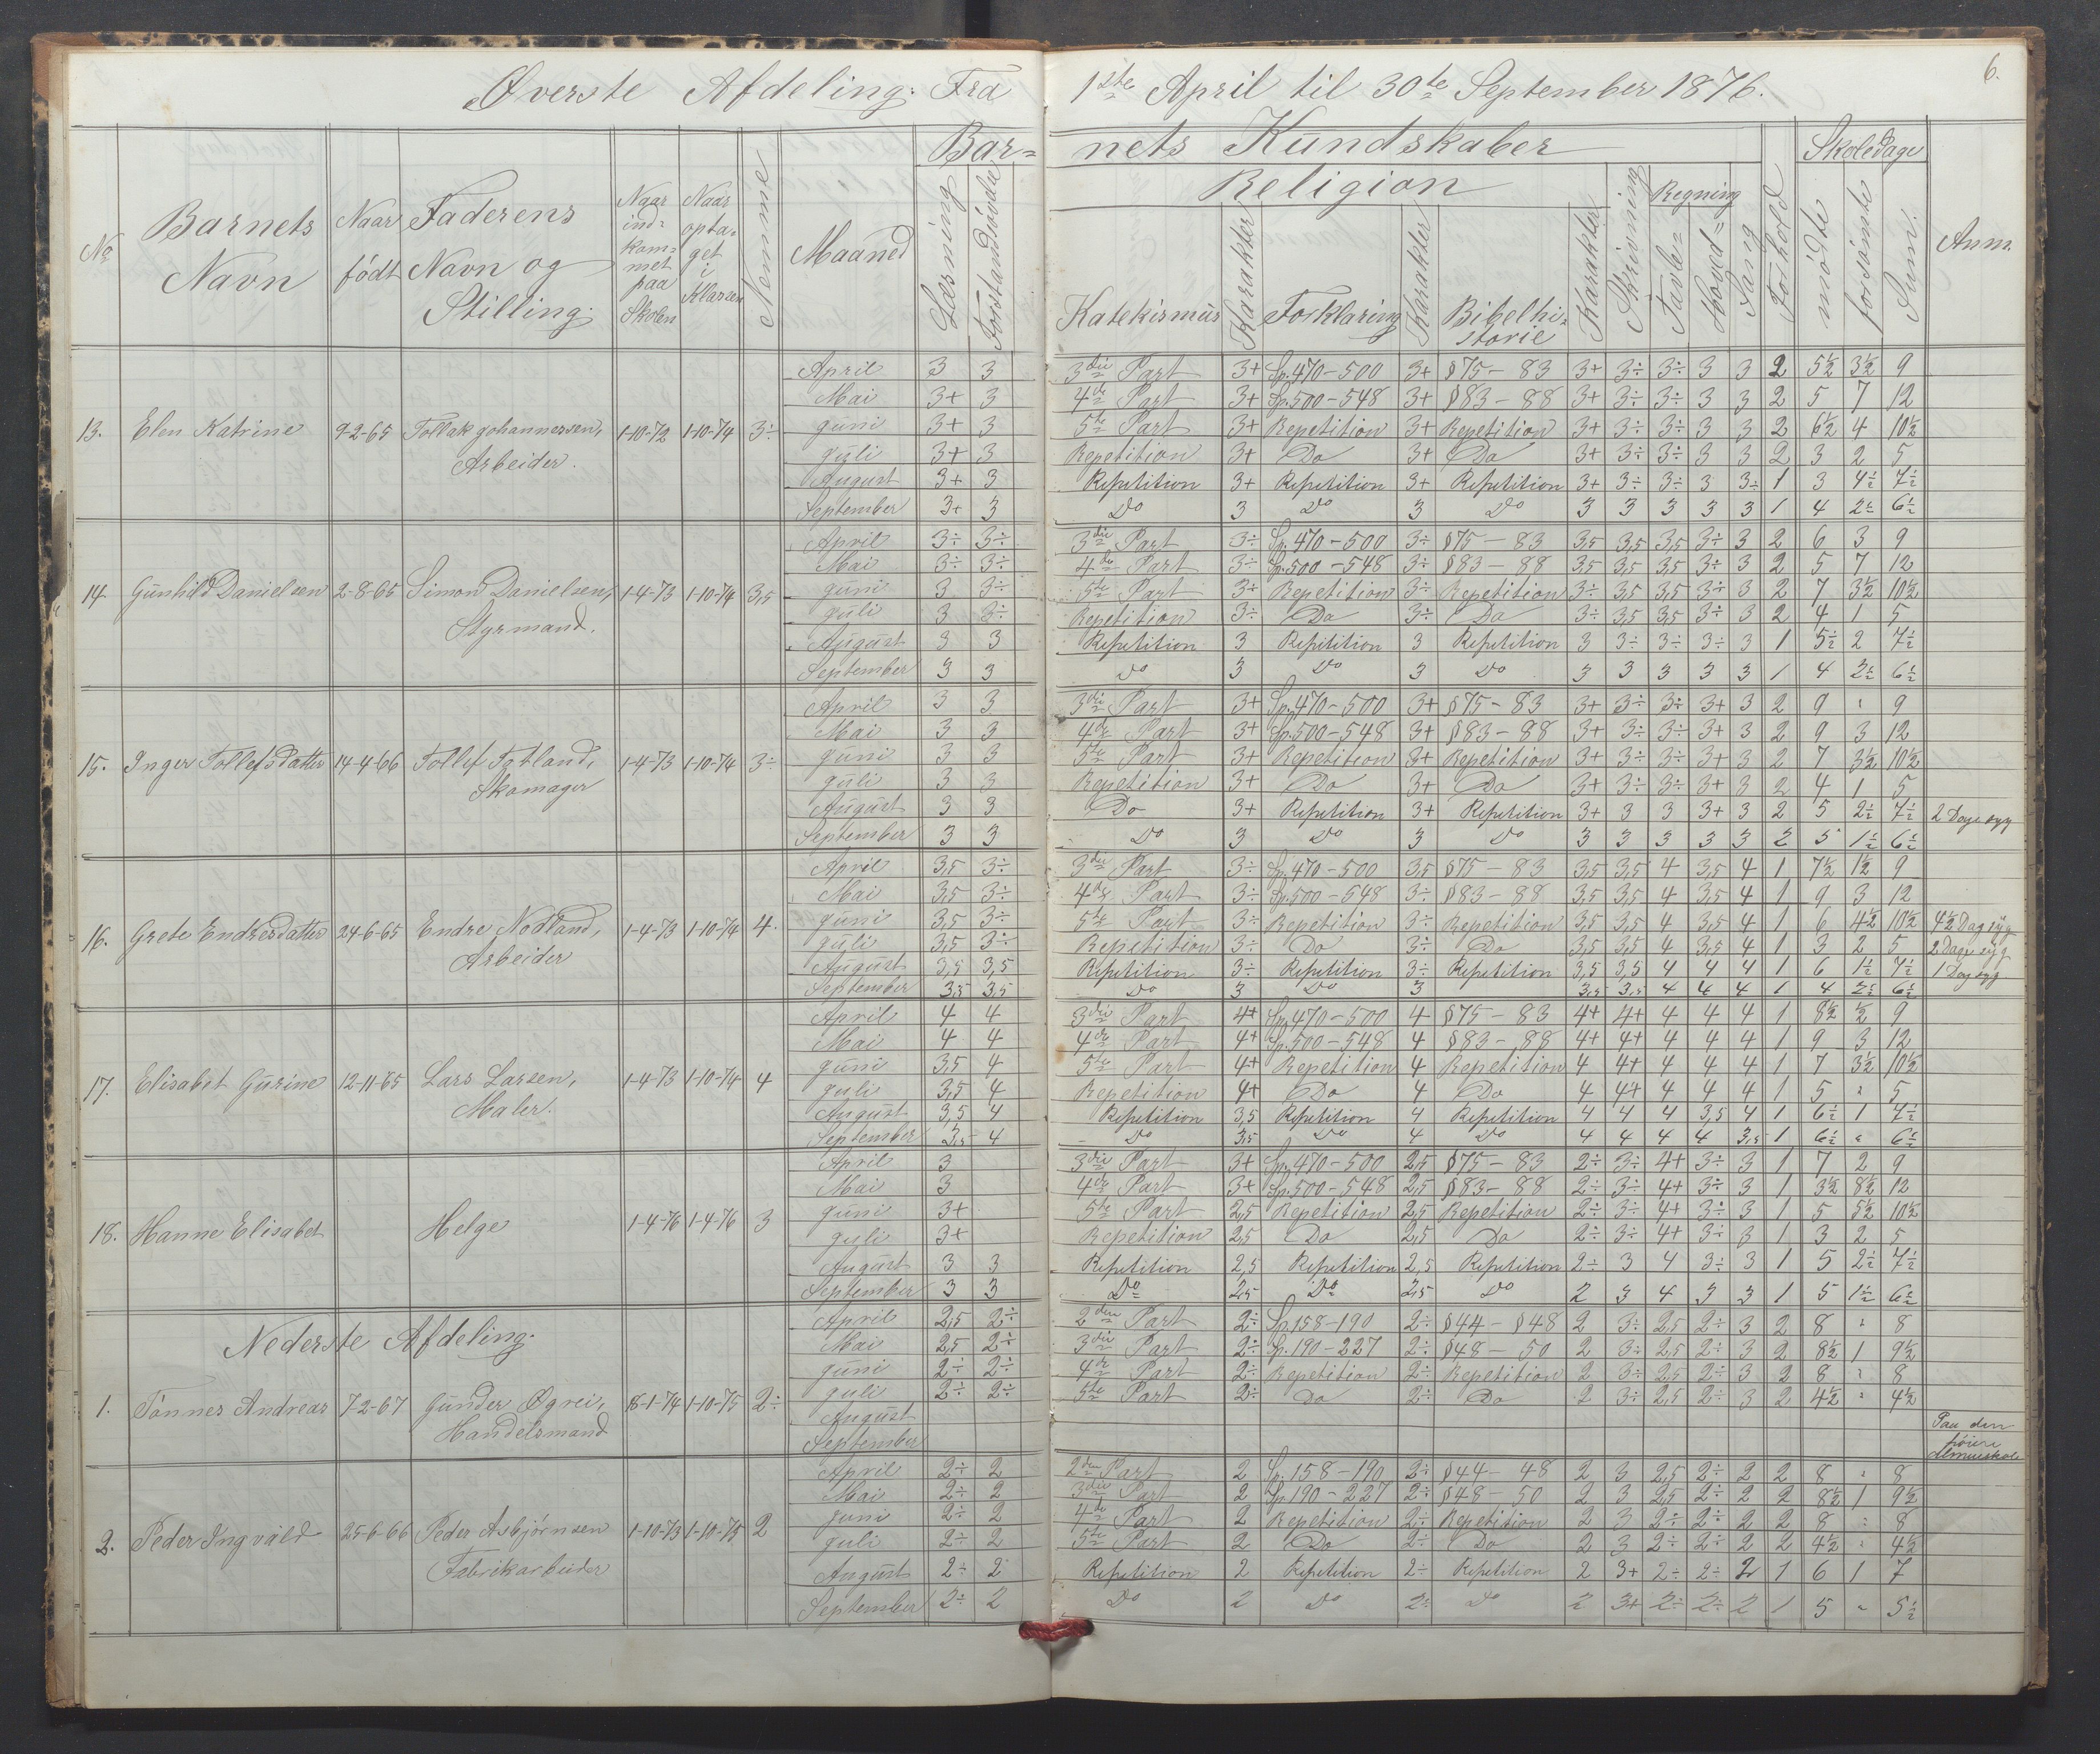 6.
Øverste Afdeling. Fra 1ste April til 30te September 1876.
Barnets Kundskaber
Skoledage
Religion
Regning
No
Barnets Navn
Naar født
Faderens Navn og Stilling.
Naar indkommet paa Skolen
Naar optaget i Klassen
Nemme
Maaned
Læsning
Forstandsøvelse
Katekismus
Karakter
Forklaring
Karakter
Bibelhistorie
Karakter
Skrivning
Tavle=
Hoved=
Sang
Forhold
mødte
forsømte
Sum.
Anm.
13. Elen Katrine 9-2-65 Tollak Johannessen, Arbeider. 1-10-72 1-10-74 3÷
April 3 3 3die Part 3+ Sp. 470-500 3+ §75-83 3+ 3÷ 3÷ 3 3 2 5½ 3½ 9
Mai 3+ 3 4de Part 3+ Sp. 500-548 3+ §83-88 3+ 3÷ 3÷ 3 3 2 5 7 12
Juni 3+ 3 5te Part 3+ Repetition 3+ Repetition 3+ 3÷ 3÷ 3 3 2 6½ 4 10½
Juli 3+ 3 Repetition 3+ Do 3+ Do 3+ 3÷ 3÷ 3 3 2 3 2 5
August 3+ 3 Repetition 3+ Repetition 3+ Repetition 3+ 3÷ 3÷ 3 3÷ 1 3 4½ 7½
September 3+ 3 Do 3 Do 3 Do 3 3 3 3 3 1 4 2½ 6½
14. Gunhild Danielsen 2-8-65 Simon Danielsen, Styrmand. 1-4-73 1-10-74 3,5
April 3÷ 3÷ 3die Part 3÷ Sp. 470-500 3÷ §75-83 3,5 3,5 3,5 3÷ 3 2 6 3 9
Mai 3÷ 3÷ 4de Part 3÷ Sp. 500-548 3÷ §83-88 3,5 3,5 3,5 3÷ 3 2 5 7 12
Juni 3 3÷ 5te Part 3÷ Repetition 3÷ Repetition 3÷ 3,5 3,5 3÷ 3 2 7 3½ 10½
Juli 3 3÷ Repetition 3÷ Do 3÷ Do 3÷ 3,5 3,5 3÷ 3 2 4 1 5
August 3 3 Repetition 3 Repitition 3 Repetition 3 3÷ 3÷ 3÷ 3 1 5½ 2 7½
September 3 3 Do 3 Do 3 Do 3 3 3 3 3 1 4 2½ 6½
15. Inger Tollefsdatter 14-4-66 Tollef Fotland, Skomager 1-4-73 1-10-74 3÷
April 3 3 3die Part 3+ Sp. 470-500 3+ §75-83 3+ 3÷ 3÷ 3+ 3 2 9 " 9
Mai 3 3 4de Part 3+ Sp. 500-548 3+ §83-88 3+ 3÷ 3÷ 3+ 3 2 9 3 12
Juni 3 3 5te Part 3+ Repetition 3+ Repetition 3+ 3÷ 3÷ 3+ 3 2 7 3½ 10½
Juli 3 3 Repetition 3+ Do 3+ Do 3+ 3÷ 3÷ 3+ 3 2 4 1 5
August 3 3 Do 3+ Repetition 3+ Repetition 3+ 3 3 3+ 3 2 5 2½ 7½ 2 Dage syg
September 3 3 Do 3 Do 3 Do 3 3 3 3 3 2 5 1½ 6½
16. Grete Endresdatter 24-6-65 Endre Nodland, Arbeider 1-4-73 1-10-74 4.
April 3,5 3÷ 3die Part 3÷ Sp. 470-500 3,5 §75-83 3,5 3,5 4 3,5 4 1 7½ 1½ 9
Mai 3,5 3÷ 4de Part 3÷ Sp. 500-548 3÷ §83-88 3,5 3,5 4 3,5 4 1 9 3 12
Juni 3,5 3÷ 5te Part 3÷ Repetition 3÷ Repetition 3,5 3,5 4 3,5 4 1 6 4½ 10½ 4½ Dag syg
Juli 3,5 3÷ Repetition 3÷ Do 3÷ Do 3,5 3,5 4 3,5 4 1 3 2 5 2 Dage syg
August 3,5 3,5 Repetition 3÷ Repetition 3÷ Repetition 3,5 3,5 4 4 4 1 6 1½ 7½ 1 Dag syg
September 3,5 3,5 Do 3 Do 3 3,5 3,5 4 4 4 1 4 2½ 6½
17. Elisabet Gurine 12-11-65 Lars Larsen, Maler. 1-4-73 1-10-74 4
April 4 4 3die Part 4+ Sp. 470-500 4 §75-83 4+ 4+ 4 4 4 1 8½ ½ 9
Mai 4 4 4de Part 4+ Sp. 500-548 4 §83-88 4+ 4+ 4 4 4 1 9 3 12
Juni 3,5 4 5te Part 4+ Repetition 4 Repetition 4 4+ 4 4 4 1 7 3½ 10½
Juli 3,5 4 Repetition 4+ Do 4 Do 4 4+ 4 4 4 1 5 " 5
August 3,5 4 Repetition 3,5 Repetition 4 Repetition 4 4 4 3,5 4 1 6½ 1 7½
September 3,5 4 Do 3,5 Do 4 Do 4 4 4 4 3,5 1 6½ " 6½
18. Hanne Elisabet Helge 1-4-76 1-4-76 3
April 3 3die Part 3+ Sp. 470-500 2,5 §75-83 2÷ 3÷ 4+ 3÷ 3 1 7 2 9
Mai 3 4de Part 3+ Sp. 500-548 2,5 §83-88 2÷ 3÷ 4+ 3÷ 3 1 3½ 8½ 12
Juni 3+ 5te Part 2,5 Repetition 2,5 Repetition 2÷ 3÷ 4+ 3÷ 3 1 5 5½ 10½
Juli 3+ Repetition 2,5 Do 2,5 Do 2÷ 3÷ 4+ 3÷ 3 1 3 2 5
August 3 3 Repetition 2,5 Repetition 2,5 Repetition 2÷ 3 4 3÷ 3 1 5 2½ 7½
September 3 3 Do 2,5 Do 2,5 Do 2 3 4 3 3 1 5 1½ 6½
Nederste Afdeling.
1. Tönnes Andreas 7-2-67 Gunder Øgrei, Handelsmand 18-1-74 1-10-75 2÷
April 2,5 2÷ 2den Part 2÷ Sp. 158-190 2÷ §44-§48 2 3÷ 2,5 2÷ 3 2 8 " 8
Mai 2,5 2÷ 3die Part 2÷ Sp. 190-227 2÷ §48-50 2 3÷ 2,5 2÷ 3 2 8½ 1 9½
Juni 2÷ 2÷ 4de Part 2÷ Repetition 2÷ Repetition 2 3÷ 2,5 2÷ 3 2 8 " 8
Juli 2÷ 2÷ 5te Part 2÷ Do 2÷ Do 2 3÷ 2,5 2÷ 3 2 4½ " 4½
August
September Paa den høiere Almueskole
2. Peder Ingvald 25-6-66 Peder Asbjørnsen Fabrikarbeider 1-10-73 1-10-75 2
April 2÷ 2 2den Part 2 Sp. 158-190 2÷ §44-48 2 3 2,5 2÷ 2 2 8 " 8
Mai 2÷ 2 3die Part 2 Sp. 190-227 2÷ §48-50 2 3 2,5 2÷ 2 2 8½ 1 9½
Juni 2÷ 2 4de Part 2 Repetition 2÷ Repetition 2 3 2÷ 2÷ 2 2 8 " 8
Juli 2÷ 2 5te Part 2 Do 2÷ Do 2 3 2÷ 2÷ 2 2 4½ " 4½
August 2÷ 2 Repetition 2 Repetition 2÷ Repetition 2 3+ 2÷ 2÷ 2 1 6 1 7
September 2÷ 2 Do 2 Do 2÷ Do 2 3+ 2÷ 2÷ 2 1 5 " 5½